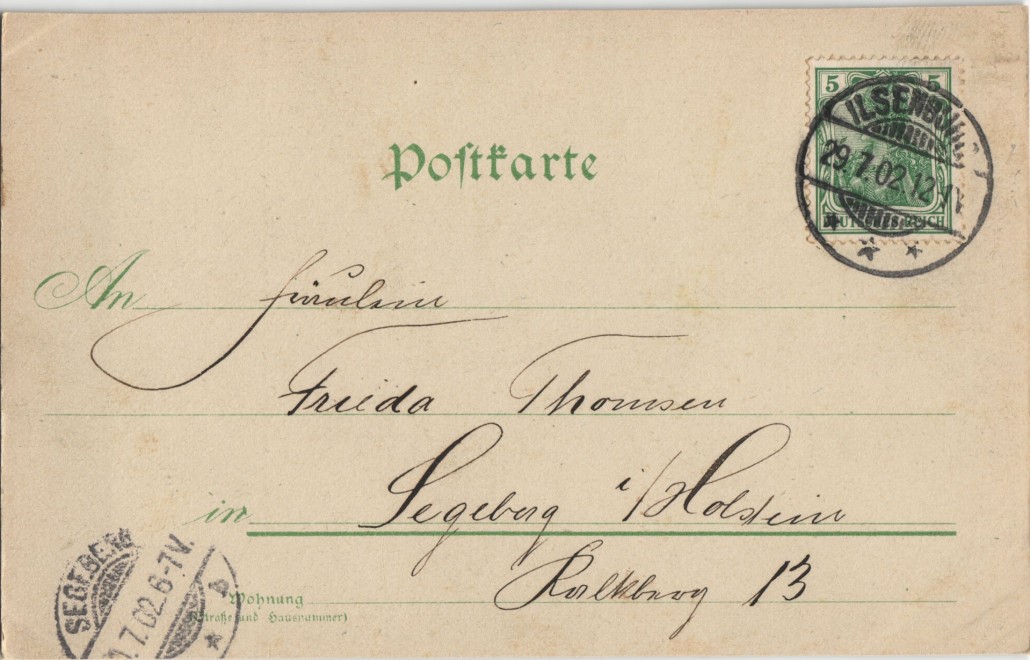 5 5
ILSENBURG
29.7.02.12-1V.
DEUTSCHES REICH
Postkarte
An Fräulein
Frieda Thomsen
in Segeberg i/Holstein
Kalkberg 13
Wohnung
(Straße und Hausnummer)
SEGEBERG
.7.02.6-7V.